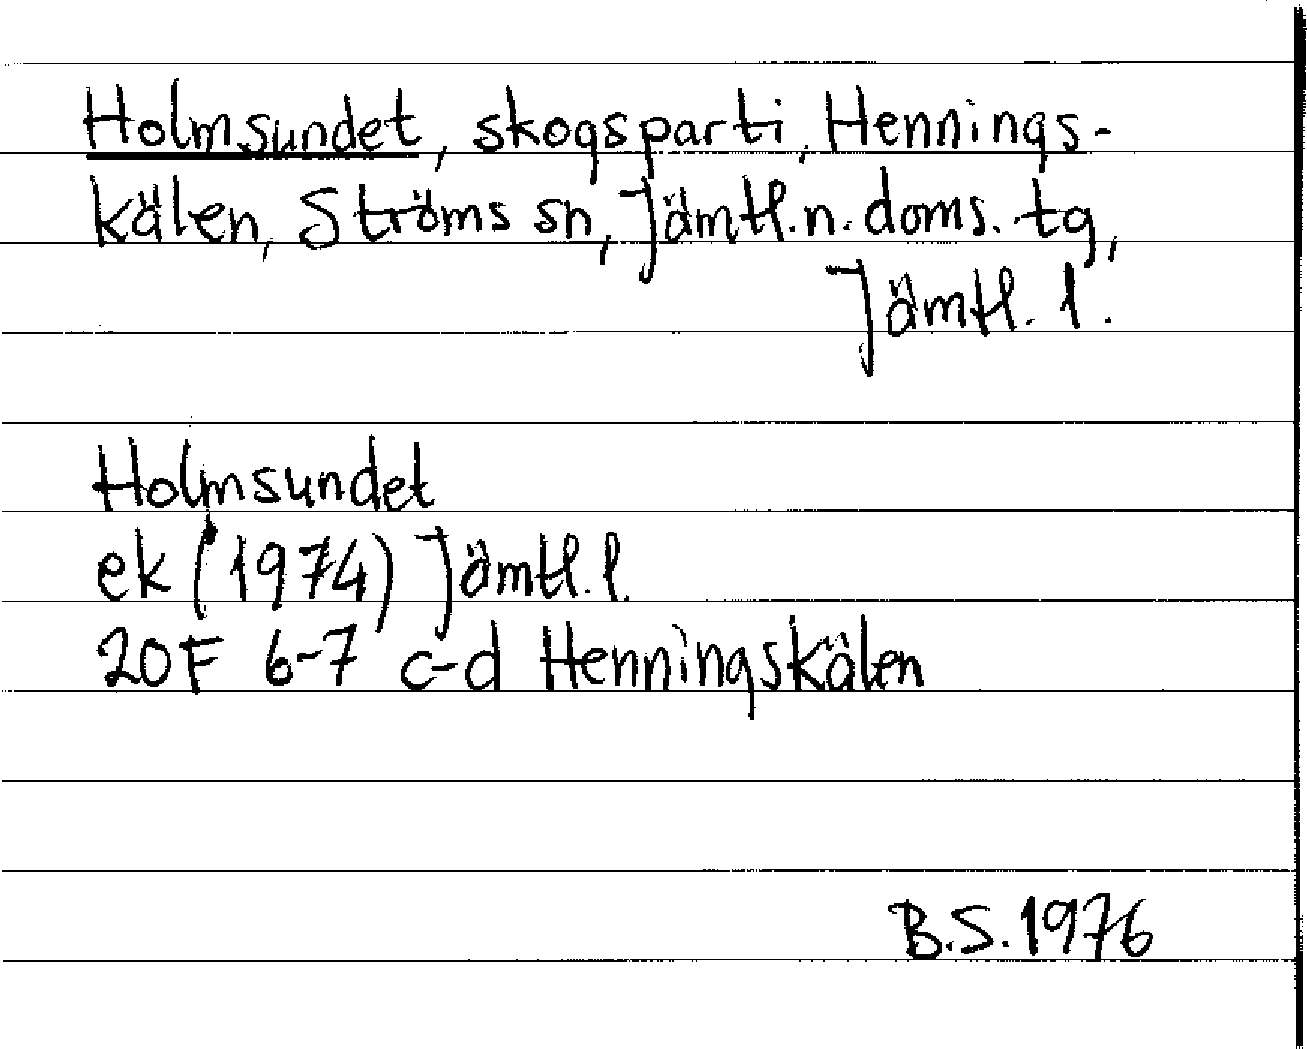 Holmsundet, skogsparti, Hennings-
kälen, Ströms sn, Jämtl.n. doms. tg,
Jämtl. l.
Holmsundet
ek (1974) Jämtl. l.
20F 6-7 c-d Henningskälen
B.S. 1976